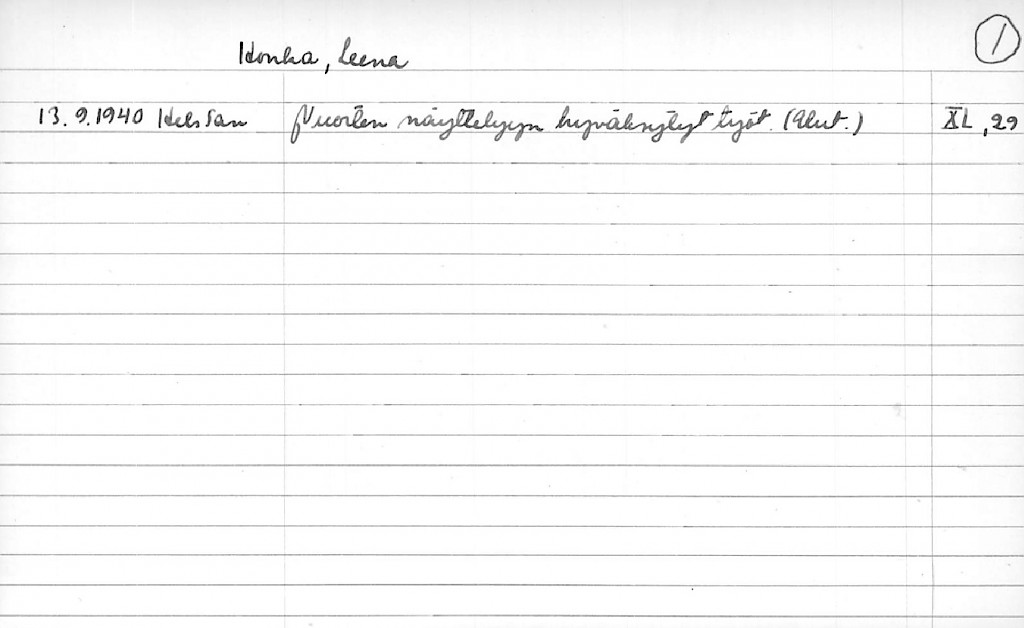 1
Honka, Leena
13.9.1940 HelsSan Nuorten näyttelyyn hyväksytyt työt. (Uut.) XL, 29